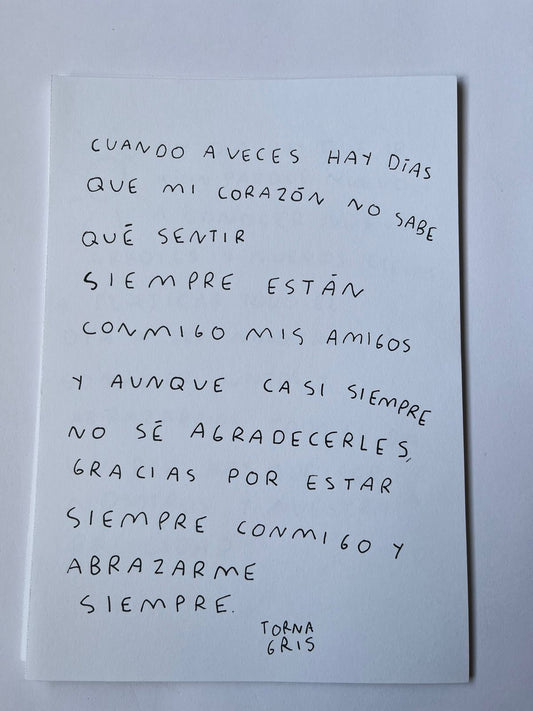 CUANDO A VECES HAY DÍAS
QUE MI CORAZÓN NO SABE
QUÉ SENTIR
SIEMPRE ESTÁN
CONMIGO MIS AMIGOS
Y AUNQUE CASI SIEMPRE
NO SÉ AGRADECERLES,
GRACIAS POR ESTAR
SIEMPRE CONMIGO Y
ABRAZARME
SIEMPRE.
TORNA
GRIS